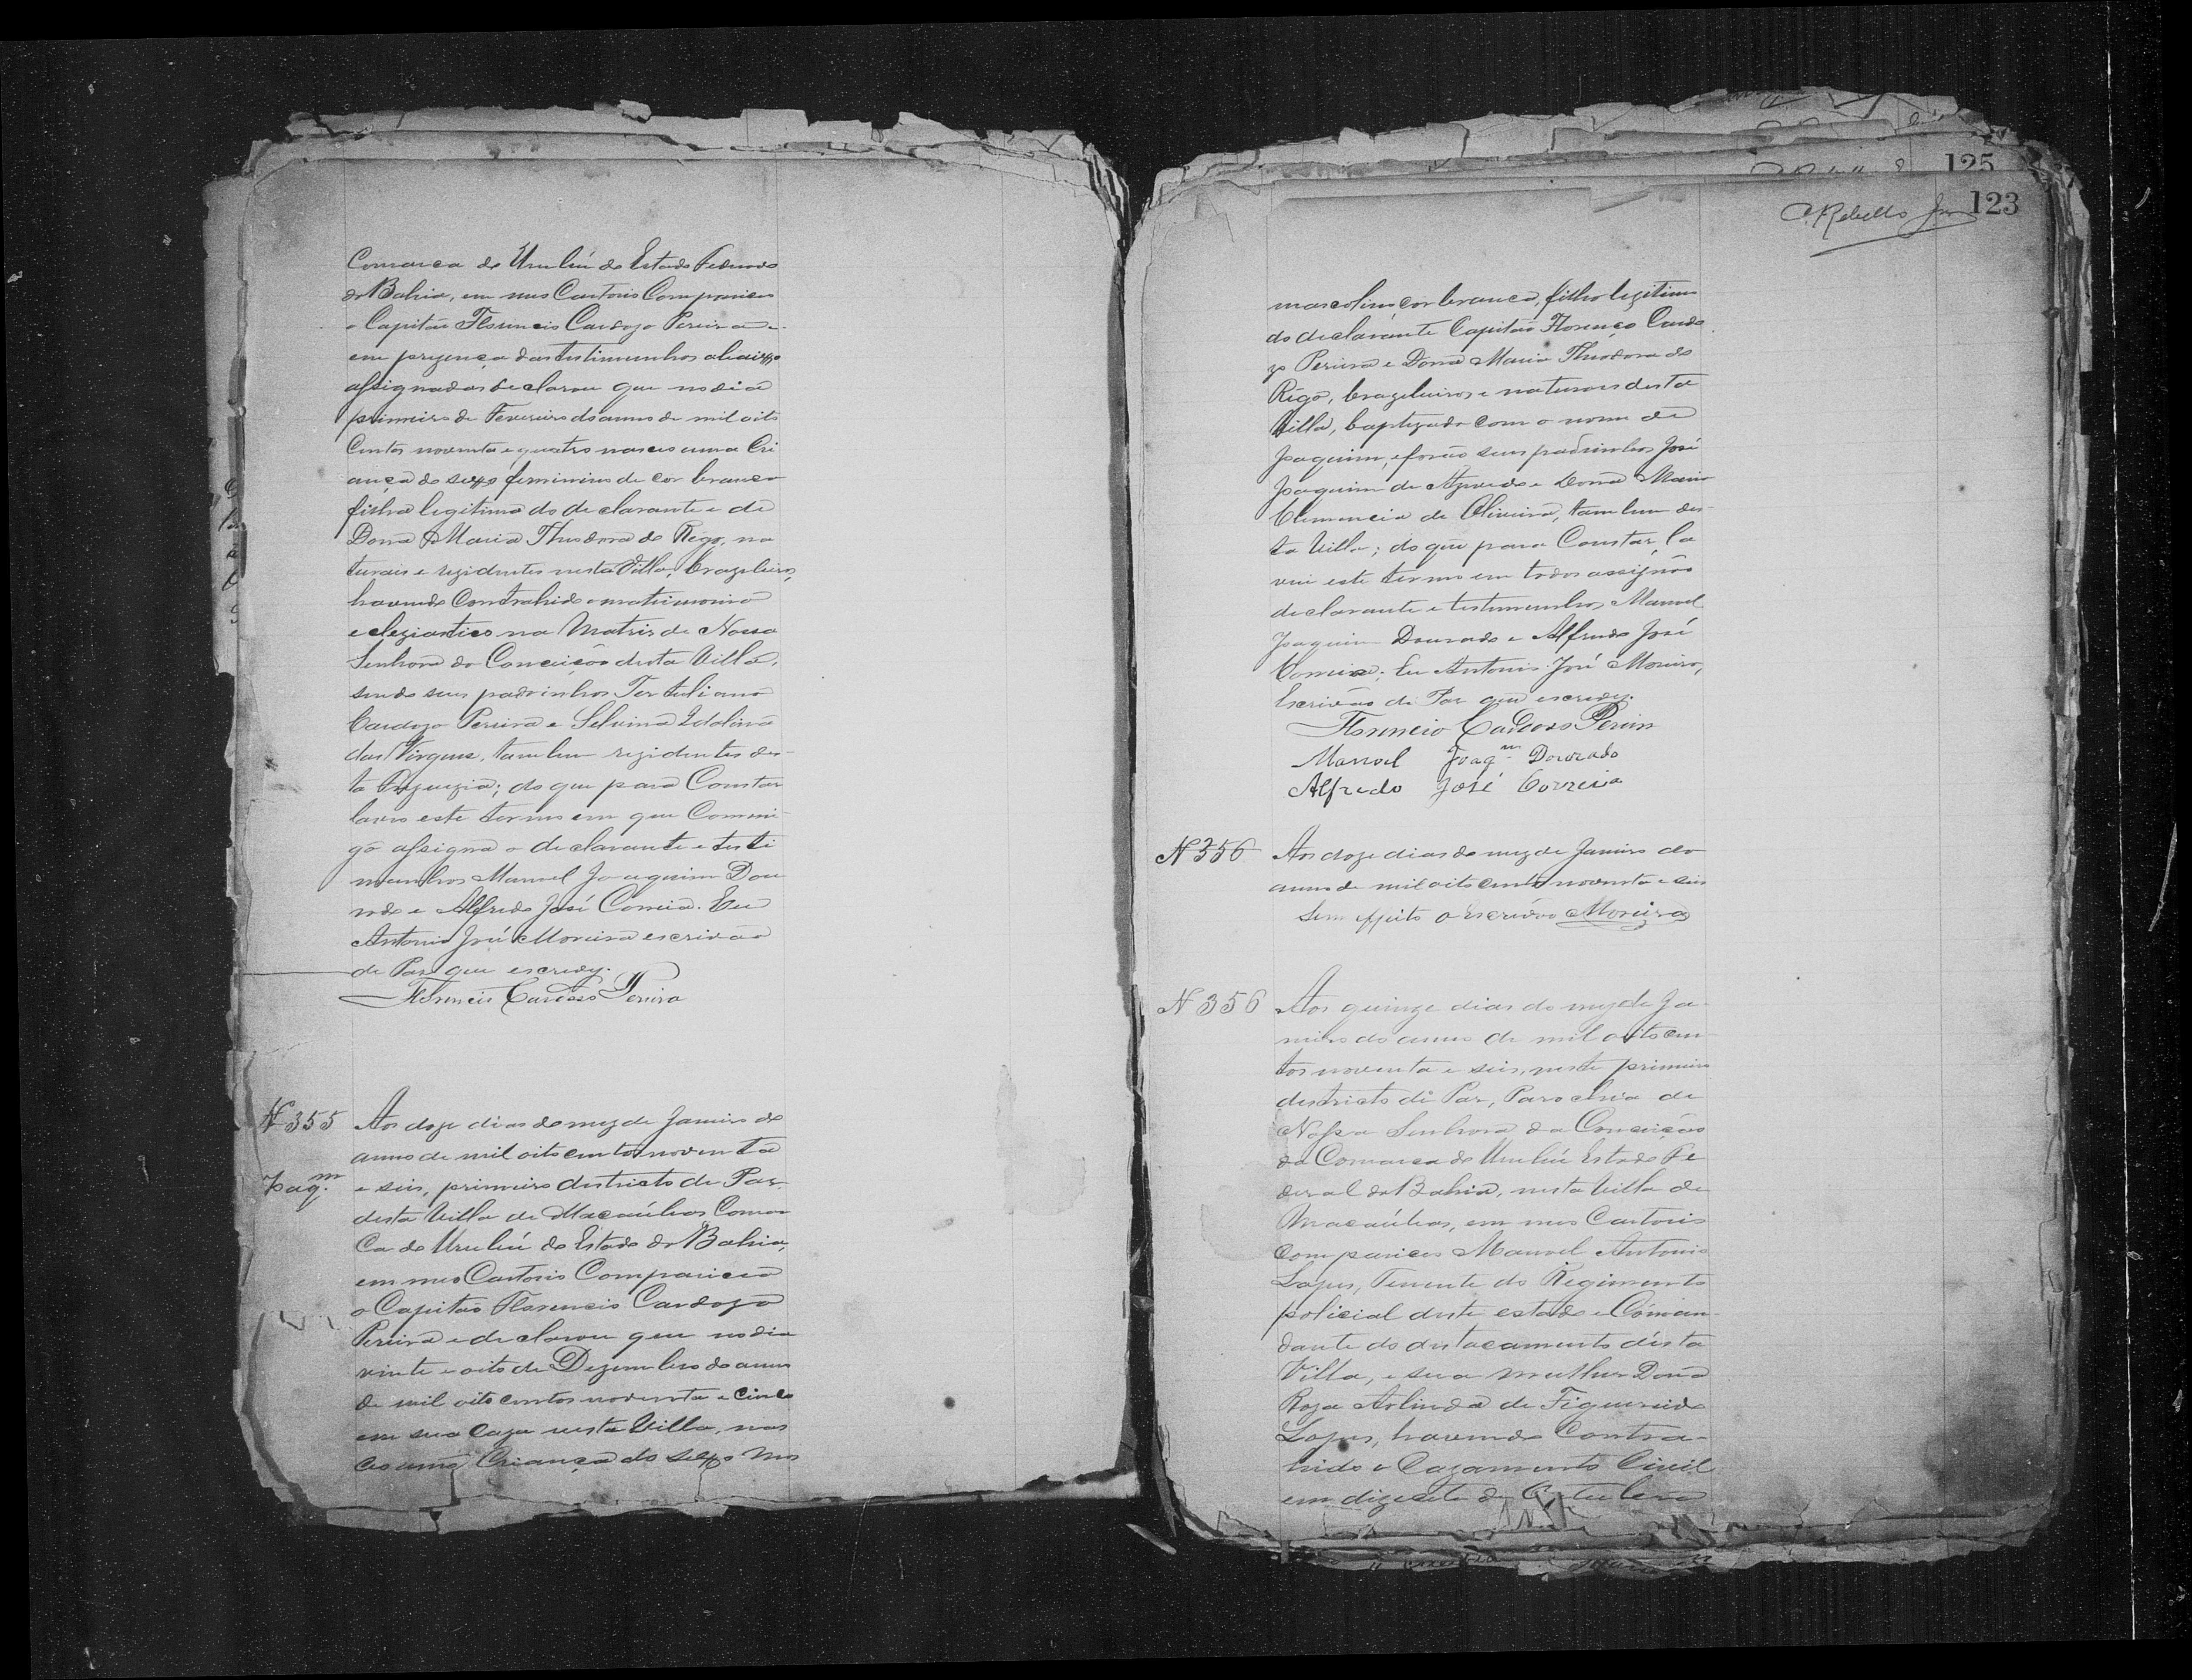 Comarca de Urubú do Estado Federado
da Bahia, em meu Cartorio Compareceo
o Capitão Florencio Cardozo Pereira e
em prezença das testimunhas abaixo
assignadas declarou que no dia
primeiro de Fevereiro do anno de mil oito
Centos noventa e quatro nasceo uma Cri
ança do sexo feminino de cor branca
filha legitima do declarante e de
Dona Maria Thiodora do Rego, na
turais e rezidentes nesta Villa, brazileiros,
havendo Contrahido o matrimonio
eclegiastico na Matris de Nossa
Senhora da Conceição desta Villa,
sendo seus padrinhos Tertuliano
Cardozo Pereira e Selvina Idalina
das Virgens, tambem rezidentes des-
ta Freguezia; do que para Constar
lavro este termo em que Commi-
go assigna o declarante e testi
munhas Manoel Joaquim Dou
rado e Alfredo José Correia. Eu
Antonio José Moreira escrivão
de Paz que escrevy.
Florencio Cardozo Pereira
N 355 Aos doze dias do mez de Janeiro do
anno de mil oito centos noventa
Joaqm. e seis, primeiro districto de Paz
desta Villa de Macaúbas Comar
Ca de Urubú do Estado da Bahia,
em meo Cartorio Compareceo
o Capitão Florencio Cardozo
Pereira e declarou que no dia
vinte e oito de Dezembro do anno
de mil oito centos noventa e cinco
em sua Caza nesta Villa, nas
ceo uma Criança do sexo mas
125
123
C. Rebello Jor
mascolino cor branca, filho legitimo
do declarante Capitão Florenço Cardo
zo Pereira e Dona Maria Thiodora do
Rego, brazileiros e naturaes desta
Villa, baptizado com o nome de
Joaquim, e forão seus padrinhos José
Joaquim de Azevedo e Dona Maria
Clemencia de Oliveira, tambem des-
ta Villa; do que para Constar, la
vrei este termo em todos assignão
declarante e testimunhas Manoel
Joaquim Dourado e Alfredo José
Correia. Eu Antonio José Moreira,
Escrivão de Paz que escrevy.
Florencio Cardozo Pereira
Manoel Joaqm. Dourado
Alfredo José Correia
N 356 Aos doze dias do mez de Janeiro do
anno de mil oito cento noventa e seis
Sem effeito o Escrivão Moreira
N 356 Aos quinze dias do mez de Ja
neiro do anno de mil oito cen
tos noventa e seis, neste primeiro
destricto de Paz, Parochia de
Nossa Senhora da Conceição
da Comarca de Urubú Estado Fe
deral da Bahia, nesta Villa de
Macaúbas, em meo Cartorio
compareceo Manoel Antonio
Lopes, Tenente do Regimento
policial deste estado e Coman-
dante do destacamento desta
Villa, e sua mulher Dona
Roza Arlinda de Figueiredo
Lopes, havendo Contra-
hido o Cazamento Civil
em